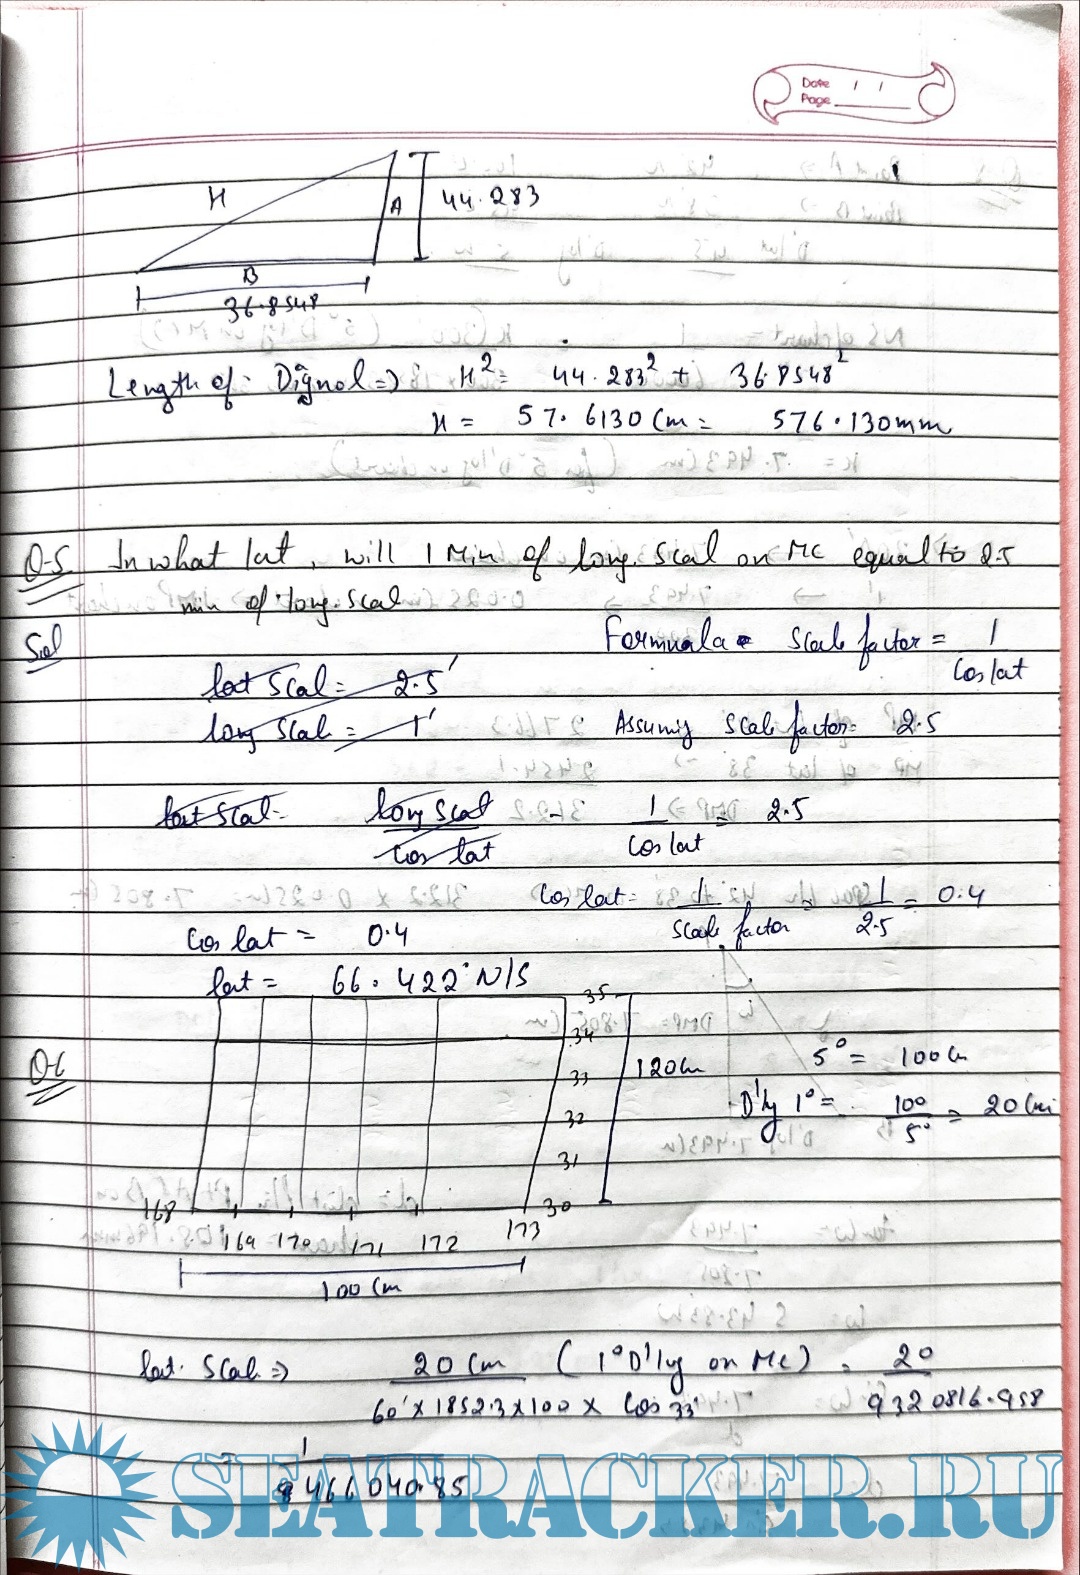 Date / /
Page
H
A
44.283
B
36.8548
Length of Dignol => H² = 44.283² + 36.8548²
H = 57.6130 Cm = 576.130mm
Q-5. In what lat, will 1 Min of long. Scal on MC equal to 2.5
min of long. Scal
Sol
Formula Scale factor = 1 / Cos lat
lat Scal = 2.5'
long Scal = 1'
Assuming Scale factor = 2.5
lat Scal = long Scal / Cos lat
1 / Cos lat = 2.5
Cos lat = 1 / Scale factor = 1 / 2.5 = 0.4
Cos lat = 0.4
lat = 66.422° N/S
Q6
35
34
33
32
31
30
120cm
5° = 100 Cm
D'lg 1° = 100 / 5° = 20 Cm
168
169 170 171 172 173
100 Cm
lat. Scal => 20 Cm / 60' x 1852.3 x 100 x Cos 33° (1° D'lg on MC) = 20 / 9320816.958
= 1 / 466040.85
SEATRACKER.RU